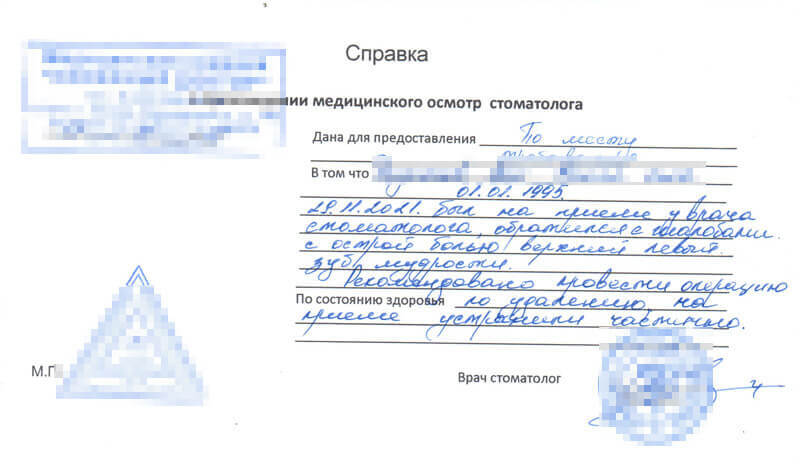 Справка
нии медицинского осмотр стоматолога
Дана для предоставления По месту
требования
В том что
01.01.1995.
29.11.2021. был на приеме у врача
стоматолога, обратился с жалобами.
с острой болью верхний левый.
зуб мудрости.
Рекомендовано провести операцию
По состоянию здоровья по удалению, на
приеме устранили частично.
М.П
Врач стоматолог